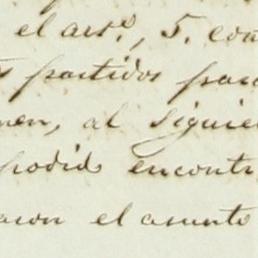 el art.º, 5. con
partidos para
men, al siguie
podido encontr
aron el asunto